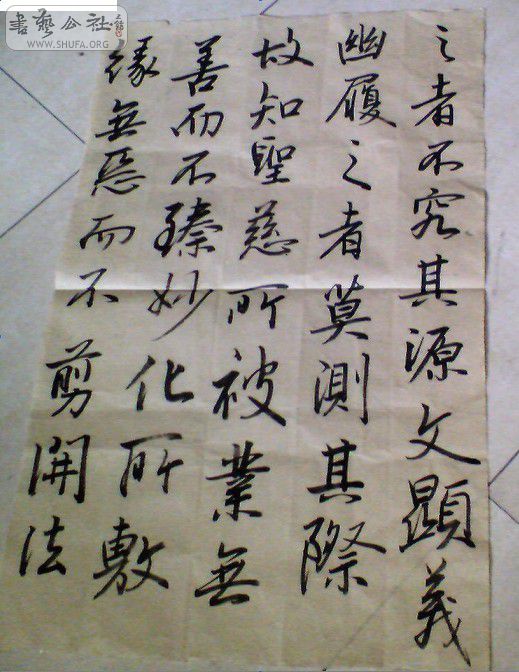 書藝公社
WWW.SHUFA.ORG
之者不究其源文顯義
幽履之者莫測其際
故知聖慈所被業無
善而不臻妙化所敷
緣無惡而不剪開法